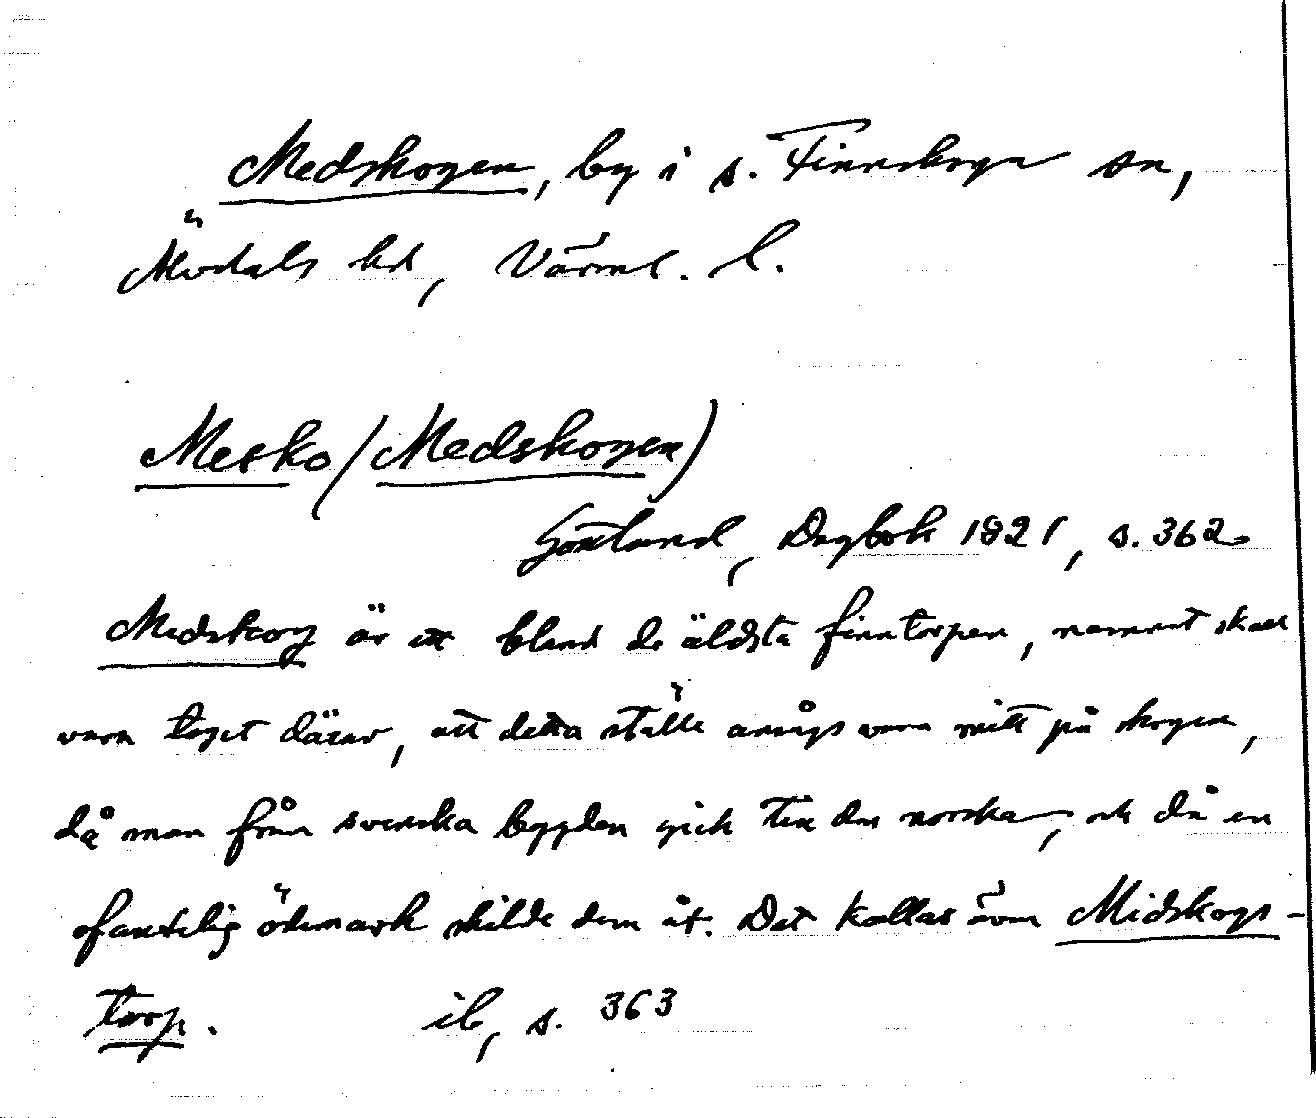 Medskogen, by i s. Finnskoga sn,
Älvdals hd, Värml. l.
Mesko (Medskogen)
Gottlund, Dagbok 1821, s. 362
Medskog är ett bland de äldsta finntorpen, namnet skall
vara taget därav, att detta ställe ansågs vara mitt på skogen,
då man från svenska bygden gick till den norska, och då en
ofantelig ödemark skilde dem åt. Det kallas även Midskogs-
torp. ib, s. 363